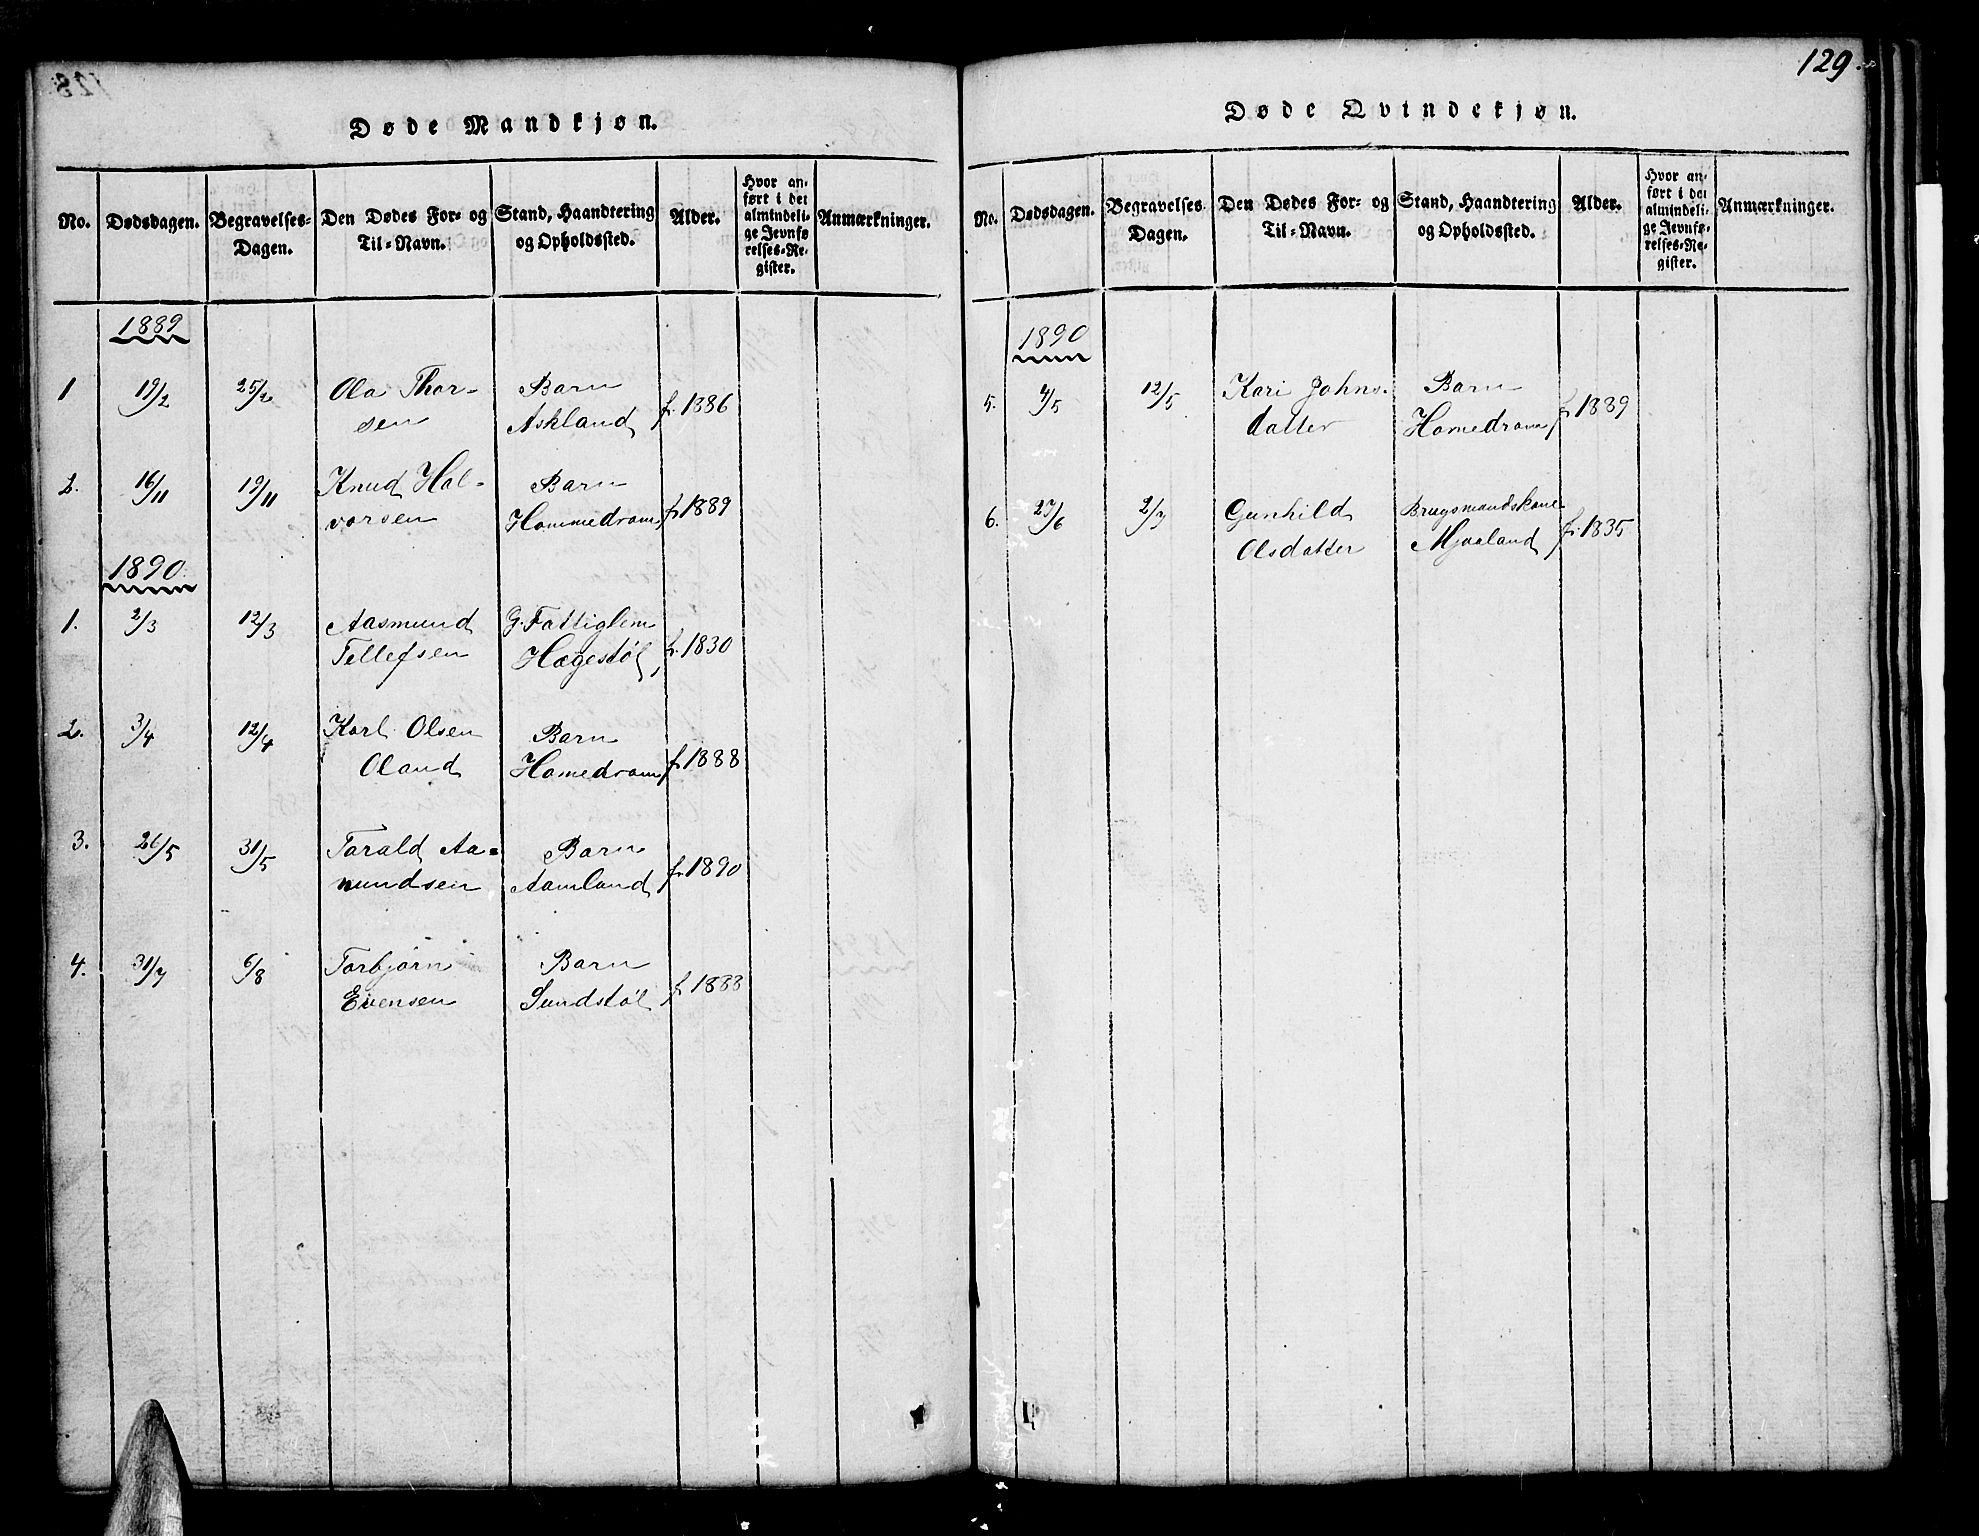 129.
Døde Mandkjøn.
No.
Dødsdagen.
Begravelses-
Dagen.
Den Dødes For- og
Til-Navn.
Stand, Haandtering
og Opholdssted.
Alder.
Hvor an-
ført i det
almindeli-
ge Jevnfø-
relses-Re-
gister.
Anmærkninger.
1889
1 19/2 25/2 Ola Thor- Barn
sen Askland f. 1886
2. 16/11 19/11 Knud Hal- Barn
vorsen Hommedram f. 1889
1890.
1. 2/3 12/3 Aasmund G. Fattiglem
Tellefsen Hægestøl, f. 1830
2. 3/4 12/4 Karl Olsen Barn
Oland Homedram f. 1888
3. 26/5 31/5 Torald Aa- Barn
nundsen Aamland f. 1890
4. 31/7 6/8 Torbjørn Barn
Evensen Sundstøl f. 1888
Døde Qvindekjøn.
No.
Dødsdagen.
Begravelses
Dagen.
Den Dødes For- og
Til-Navn.
Stand, Haandtering
og Opholdssted.
Alder.
Hvor an-
ført i det
almindeli-
ge Jevnfø-
relses-Re-
gister.
Anmærkninger.
1890
5. 4/5 12/5 Kari Johns- Barn
datter Homedram f. 1889
6. 27/6 2/7 Gunhild Brugsmandskone
Olsdatter Mjaaland f. 1835